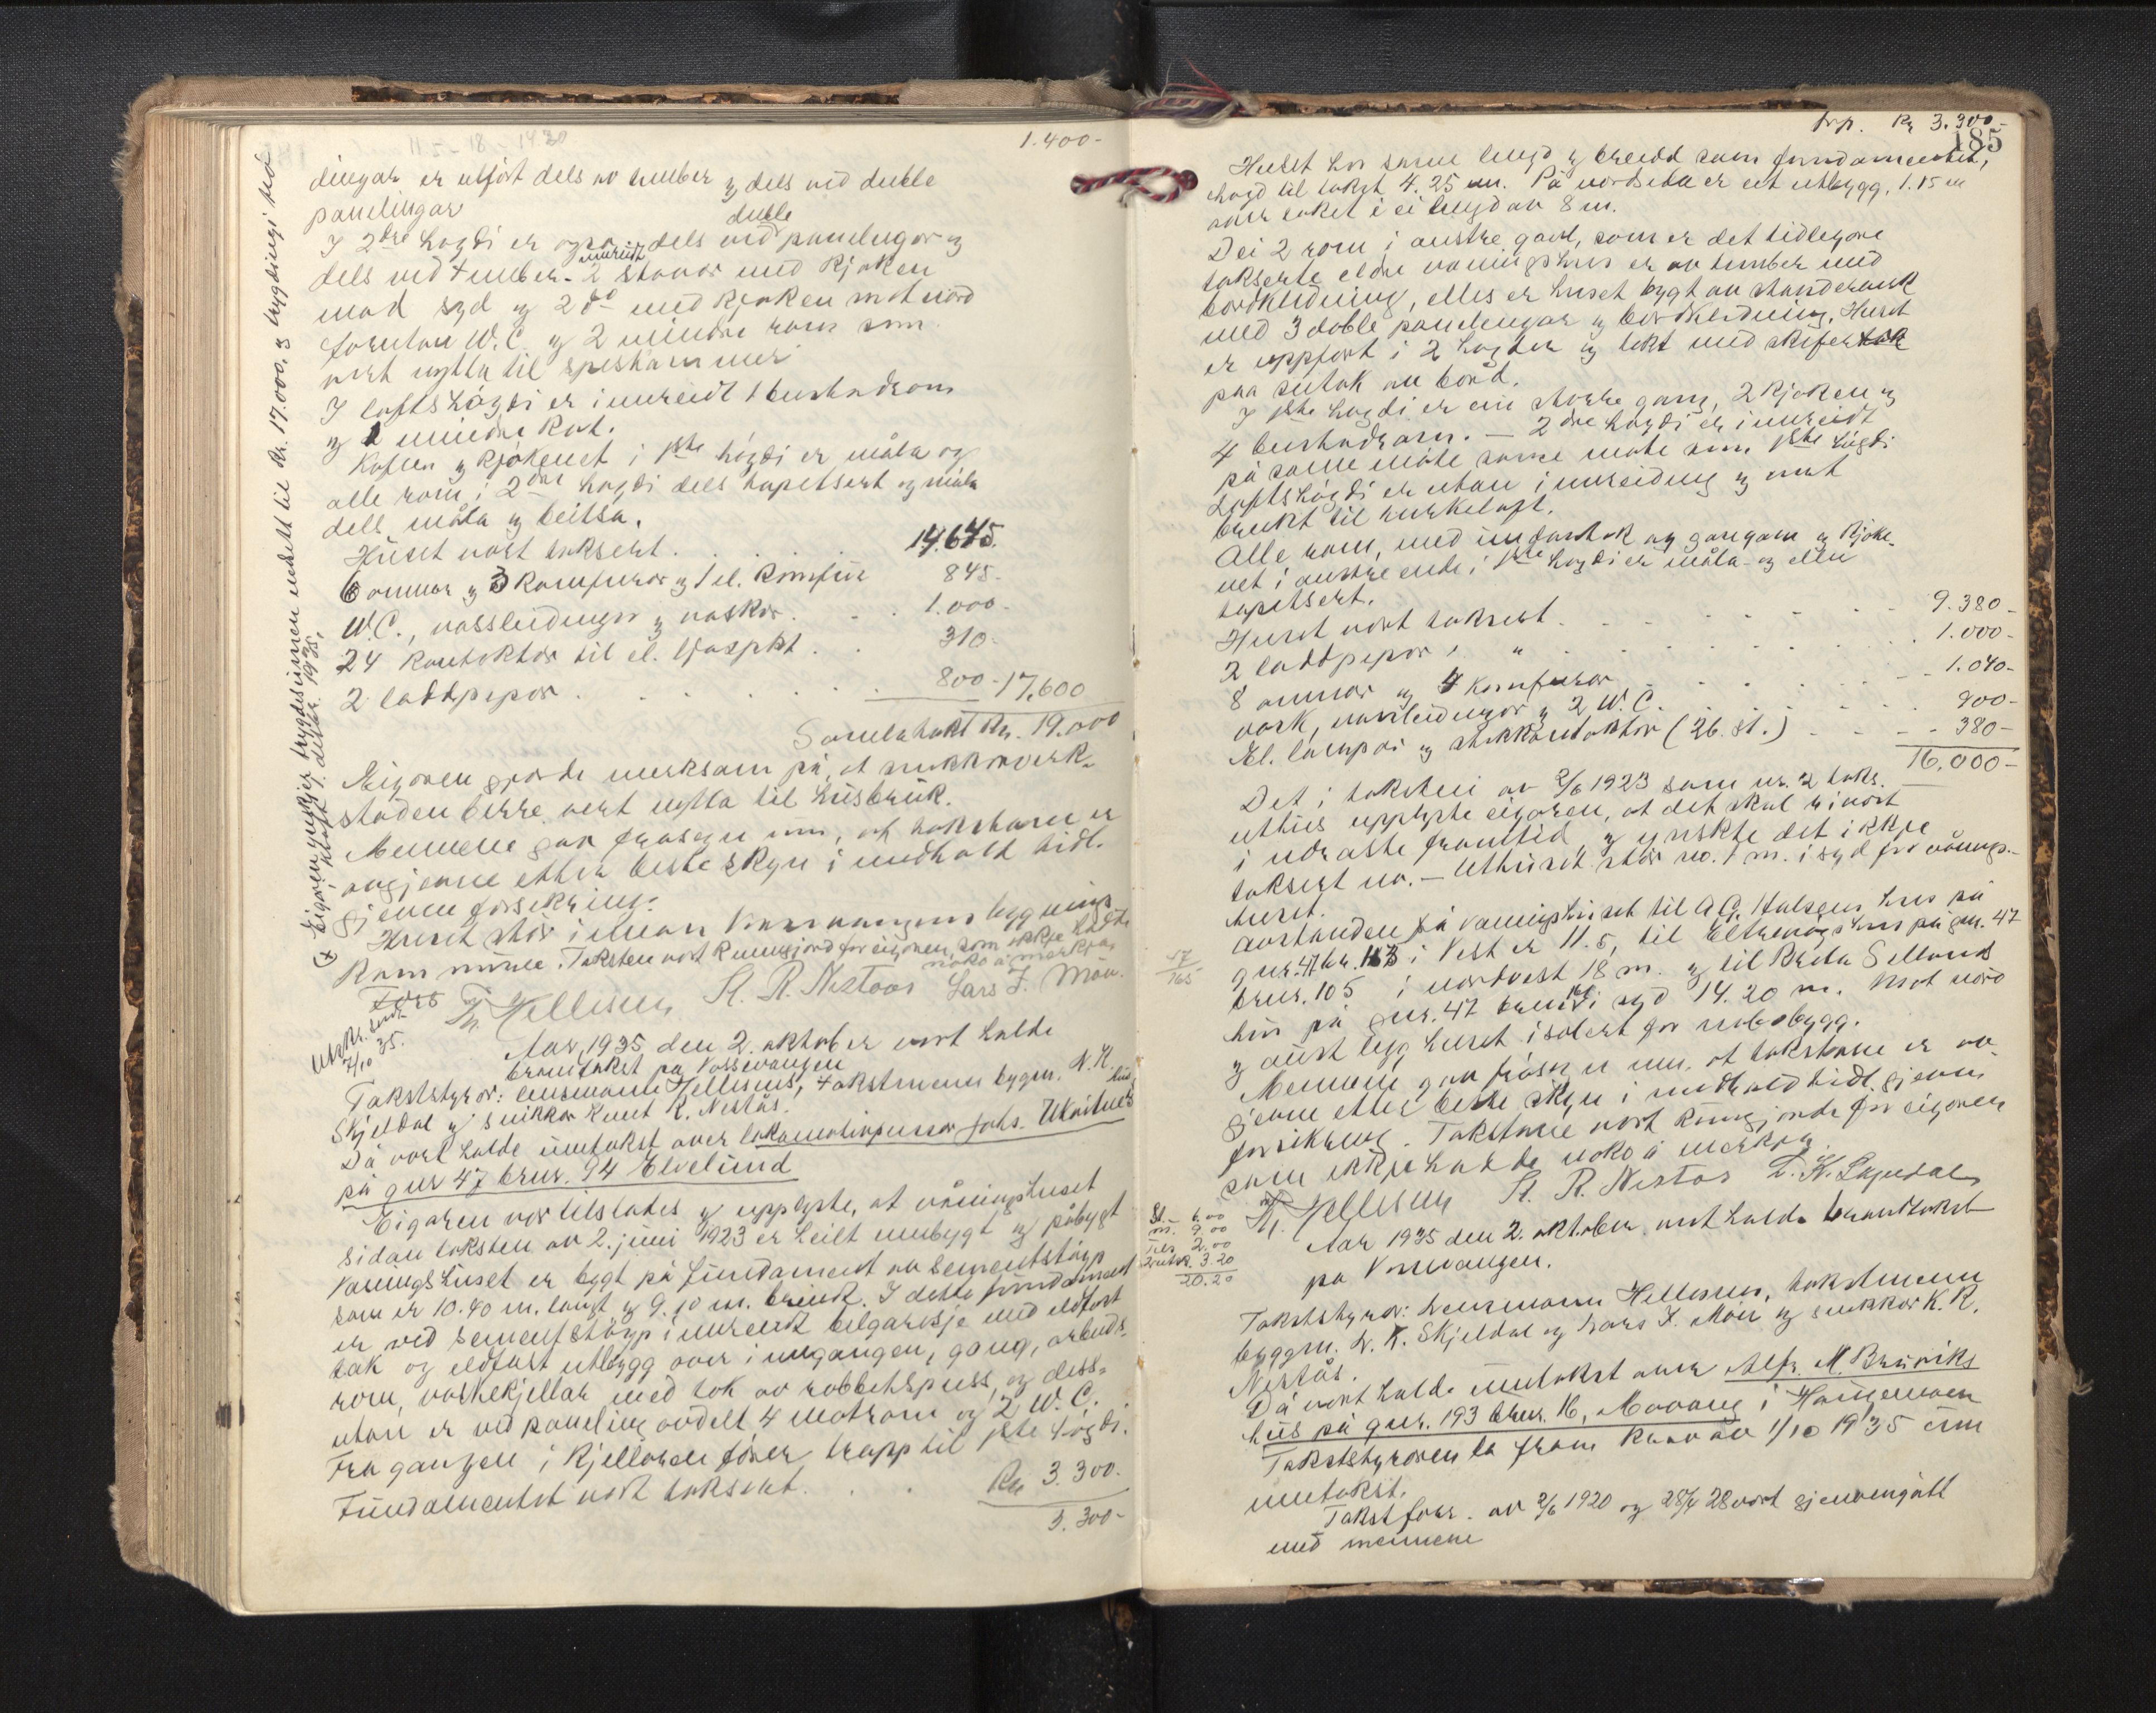 1.400-
dingar er utført dels av tember og dels ved duble
panelingar
I 2dre høgdi er ogso dels ved duble panelingar og
dels ved tember. 2 stovor med kjøken
mod syd og 2 do med kjøken mot nord
foruten W.C. og 2 mindre rom som
vert nytta til speskammer
I loftshögdi er innreidt 1 beustadrom
og 1 mindre kot.
Kofren og kjøkenet i 1ste högdi er måla og
alle rom i 2dre högdi dels tapetsert og måla
dels måla og beitsa.
Huset vart taksert . . . . . 14.645.
6 omnar og 3 komfuror og 1 el. komfür 845-
W.C., vassleidingor og vaskar . . . 1.000-
24 kontaktor til el. ljospkt . . 310-
2 laddpipor . . . . . . . 800- 17,600
Samla takst Kr. 19.000
Eigaren gjorde merksam på, at snikkarverk-
staden berre vert nytta til husbruk.
Mennene gav frasegn um, at takstane er
avgjevne etter beste skyn i medhald tidl.
gjeven forsikring.
Huset står innan Vossevangens bygnings
kommune. Taksten vart kunngjord for eigaren, som ikkje hadde
noko å merkja.
Th. Hellesnes K. R. Nestaas Lars I. Møn.
Utskr. sendt
7/10 35.
(x Eigaren ynskjer trygdesummen nedsett til Kr. 17.000,- og trygdingi ved
1935.
Aar 1935 den 2. oktober vart halde
branntakst på Vossevangen
Takststyrar: lensmann Hellesnes, takstmenn bygm. N. K.
Skjeldal og snikkar Knut R. Nestås.
Då vart halde umtakst over lokomotivpussar Johs. Ukvitnes hus
på gnr 47 brnr. 94 Elvelund
Eigaren var tilstades og upplyste, at våningshuset
sidan taksten av 2. juni 1923 er heilt umbygt og påbygt
Vaningshuset er bygt på fundament av sementstöyp
som er 10.40 m. langt og 9.10 m. breidt. I dette fundament
er ved sementstöyp innreidt bilgarasje med eldfast
tak og eldfast utbygg over inngangen, gang, arbeids-
rom, vaskekjellar med tak av rabbetspuss, og dess-
utan er ved paneling avdelt 4 matrom og 2 W.C.
Fra gangen i kjellaren förer trapp til 1ste högdi.
Fundamentet vart taksert . . . Kr 3.300.
3.300-
Trsp. Kr 3.300-
185
Huset har same lengd og breidd som fundamentet,
høgd til takst 4.25 m. På nordsida er eit utbygg, 1.15 m
over taket i ei lengd av 8 m.
Dei 2 rom i austre gavl, som er det tidlegare
takserte eldre våningshus er av tember med
bordkledning, elles er huset bygt av standerverk
med 3 doble panelingar og bordkledning. Huset
er uppført i 2 høgder og tekt med skifer
paa sutak av bord.
I 1ste høgdi er ein storre gang, 2 kjøken og
4 beustadrom. - 2dre høgdi er innreidt
på same måte same måte som 1ste högdi
Loftshögdi er utan innreiding og vert
brukt til turkeloft.
Alle rom, med undantak av gangam og kjøke-
net i austre ende i 1ste høgdi er måla og eller
tapetsert.
Huset vart taksert . . . . . . 9.380-
2 laddpipor " . . . . . . 1.000-
8 omnar og 4 komfuror . . . . . 1.040-
vask, vassleidingor og 2 W.C. . . . . 900-
El. lampor og stikkontaktor (26. st.) . . . . 380-
16.000-
Det i taksten av 2/6 1923 som nr. 2 taks.
uthus upplyste eigaren, at det skal rivast
i næraste framtid, og ynskte det ikkje
taksert no. - Uthuset står no. 1 m. i syd for vånings-
huset.
Avstanden på vaningshuset til A. G. Halsens hus på
gnr. 47 br. 163 i Vest er 11.5, til Elvevegs hus på gnr. 47
brnr. 105 i nordvest 18 m. og til Brita Sellands
hus på gnr. 47 brnr 160 i syd 14.20 m. Mot nord
og aust ligg huset isolert for nabobygg.
Mennene gav fråsegn um, at takstane er av-
gjevne etter beste skyn i medhald tidl. gjeven
forsikring. Takstane vart kunngjorde for eigaren
som ikkje hadde noko å merkja.
Th. Hellesnes K. R. Nestas N. K. Skjeldal
47
165
St. 6.00
m. 9.00
Tils. 2.00
Utsk. 3.20
20.20
Aar 1935 den 2. oktober vart halde branntakst
på Vossevangen.
Takststyrar: Lensmann Hellesnes, takstmenn
byggm. N. K. Skjeldal og Lars I. Møn og snikkar K. R.
Nestås.
Då vart halde umtakst over Alfr. M. Brunviks
hus på gnr. 193 brnr. 16, Moavang i Haugamoen
Takststyraren la fram krav av 1/10 1935 um
umtakst.
Takstforr. av 2/6 1920 og 28/4 28 vart gjenomgått
med mennene